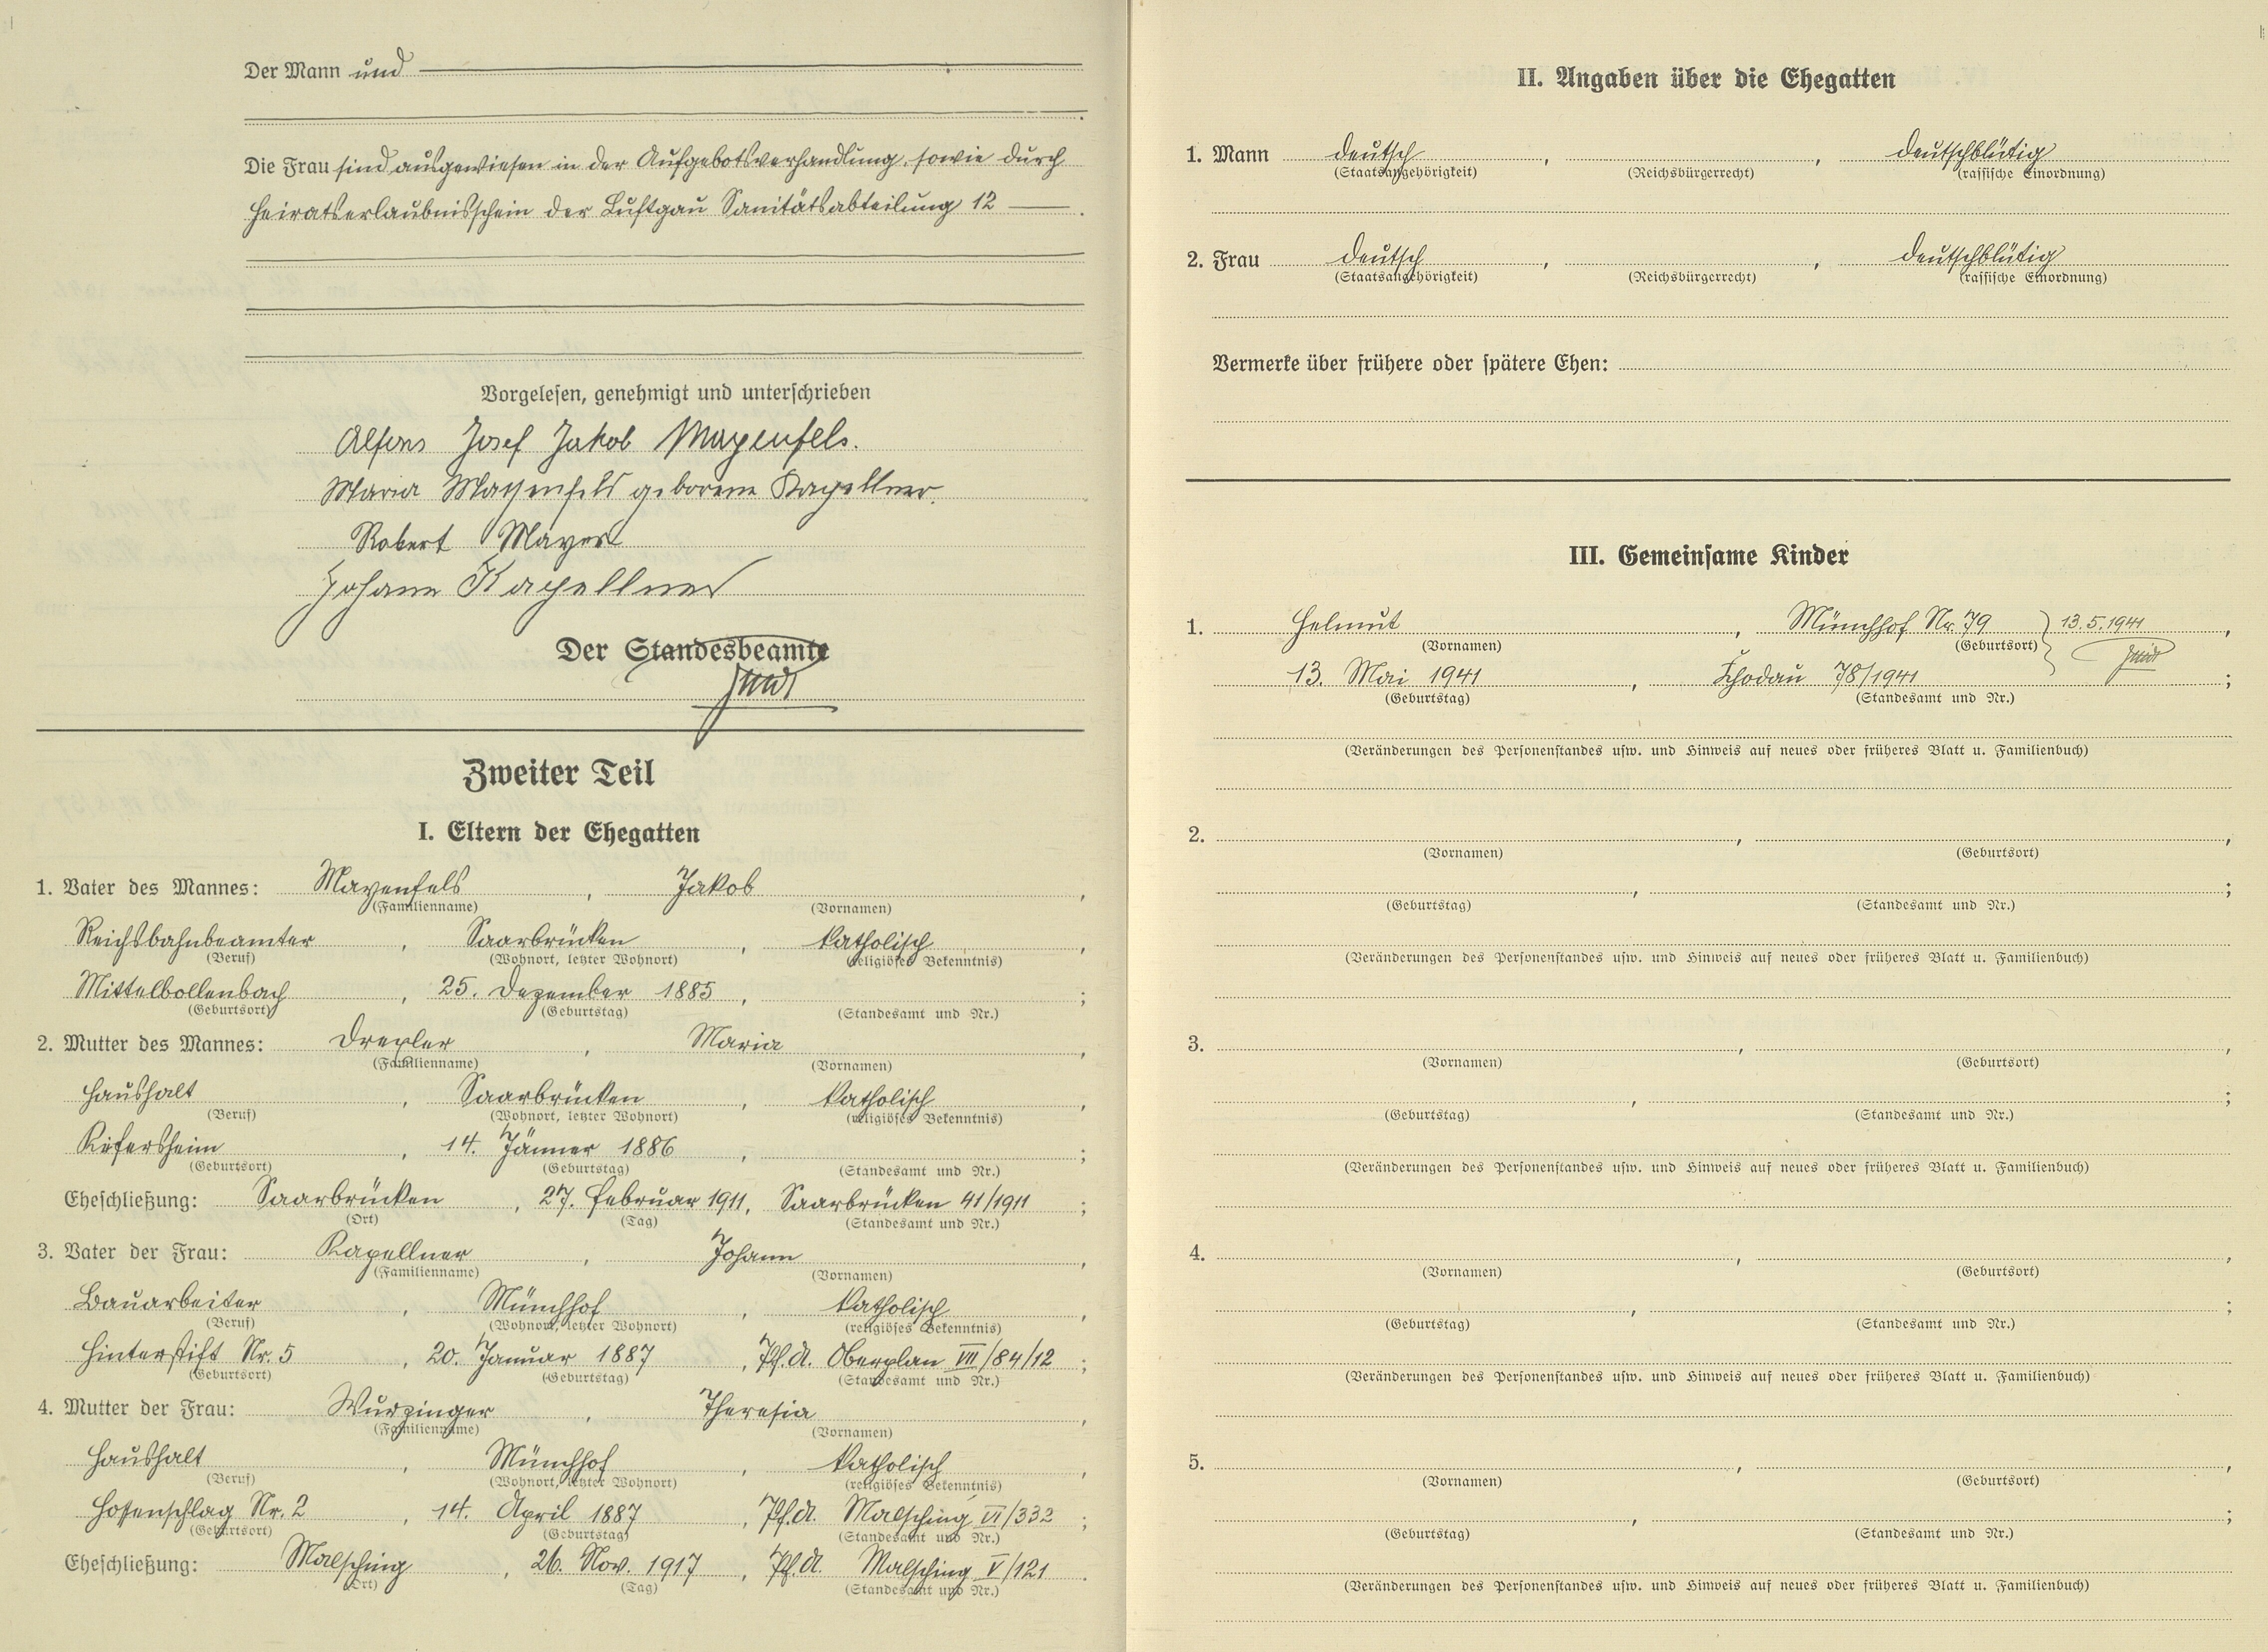 Der Mann und
Die Frau sind ausgewiesen in der Aufgebotsverhandlung, sowie durch
Heiratserlaubnisschein der Luftgau Sanitätsabteilung 12 .
Vorgelesen, genehmigt und unterschrieben
Alfons Josef Jakob Mayenfels.
Maria Mayenfels geborene Kapellner.
Robert Mayer
Johann Kapellner
Der Standesbeamte
Zweiter Teil
I. Eltern der Ehegatten
1. Vater des Mannes: Mayenfels , Jakob ,
(Familienname) (Vornamen)
Reichsbahnbeamter , Saarbrücken , katholisch ,
(Beruf) (Wohnort, letzter Wohnort) (religiöses Bekenntnis)
Mittelbollenbach , 25. Dezember 1885 , ;
(Geburtsort) (Geburtstag) (Standesamt und Nr.)
2. Mutter des Mannes: Drexler , Maria ,
(Familienname) (Vornamen)
Haushalt , Saarbrücken , katholisch ,
(Beruf) (Wohnort, letzter Wohnort) (religiöses Bekenntnis)
, 14. Jänner 1886 , ;
(Geburtsort) (Geburtstag) (Standesamt und Nr.)
Eheschließung: Saarbrücken , 27. Februar 1911, Saarbrücken 41/1911 ;
(Ort) (Tag) (Standesamt und Nr.)
3. Vater der Frau: Kapellner , Johann ,
(Familienname) (Vornamen)
Bauarbeiter , Münchhof , katholisch ,
(Beruf) (Wohnort, letzter Wohnort) (religiöses Bekenntnis)
Hinterstift Nr. 5 , 20. Januar 1887 , Pf.A. Oberplan VII/84/12 ;
(Geburtsort) (Geburtstag) (Standesamt und Nr.)
4. Mutter der Frau: Wurzinger , Theresia ,
(Familienname) (Vornamen)
Haushalt , Münchhof , katholisch ,
(Beruf) (Wohnort, letzter Wohnort) (religiöses Bekenntnis)
Hossenschlag Nr. 2 , 14. April 1887 , Pf.A. Malsching VI/332 ;
(Geburtsort) (Geburtstag) (Standesamt und Nr.)
Eheschließung: Malsching , 26. Nov. 1917 , Pf.A. Malsching V/121 .
(Ort) (Tag) (Standesamt und Nr.)
II. Angaben über die Ehegatten
1. Mann deutsch , , deutschblütig
(Staatsangehörigkeit) (Reichsbürgerrecht) (rassische Einordnung)
2. Frau deutsch , , deutschblütig
(Staatsangehörigkeit) (Reichsbürgerrecht) (rassische Einordnung)
Vermerke über frühere oder spätere Ehen:
III. Gemeinsame Kinder
1. Helmut , Münchhof Nr. 79 } 13.5.1941 ,
(Vornamen) (Geburtsort)
13. Mai 1941 , Chodau 78/1941 ;
(Geburtstag) (Standesamt und Nr.)
(Veränderungen des Personenstandes usw. und Hinweis auf neues oder früheres Blatt u. Familienbuch)
2. , ,
(Vornamen) (Geburtsort)
, ;
(Geburtstag) (Standesamt und Nr.)
(Veränderungen des Personenstandes usw. und Hinweis auf neues oder früheres Blatt u. Familienbuch)
3. , ,
(Vornamen) (Geburtsort)
, ;
(Geburtstag) (Standesamt und Nr.)
(Veränderungen des Personenstandes usw. und Hinweis auf neues oder früheres Blatt u. Familienbuch)
4. , ,
(Vornamen) (Geburtsort)
, ;
(Geburtstag) (Standesamt und Nr.)
(Veränderungen des Personenstandes usw. und Hinweis auf neues oder früheres Blatt u. Familienbuch)
5. , ,
(Vornamen) (Geburtsort)
, ;
(Geburtstag) (Standesamt und Nr.)
(Veränderungen des Personenstandes usw. und Hinweis auf neues oder früheres Blatt u. Familienbuch)